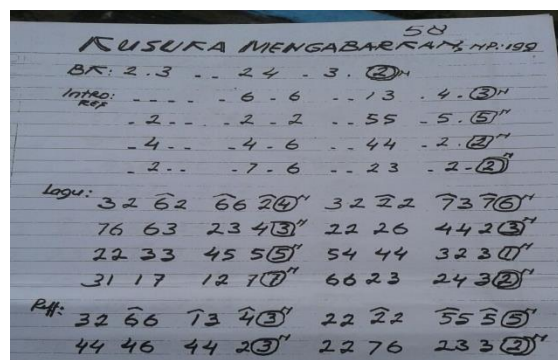 58
KUSUKA MENGABARKAN, HP:199
BK: 2 . 3 . . 2 4 . 3 . ②N
Intro: - - - - - 6 - 6 - - 1 3 . 4 . ③N
REF - 2 - - - 2 - 2 - - 5 5 . 5 . ⑤N
- 4 - - - 4 - 6 - - 4 4 - 2 . ②N
- 2 - - - 7 - 6 - - 2 3 - 2 - ②N
Lagu: 3 2 6̂ 2 6̂ 6 2̂ ④N 3 2 2̂ 2 7̂ 3 7̂ ⑥N
76 63 23 4 ③N 22 26 44 2 ③N
22 33 45 5 ⑤N 54 44 32 3 ①N
31 17 12 7 ⑦N 66 23 24 3 ②N
Reff: 32 6̂6 1̂3 4̂ ③N 22 2̂2 5̂5 5̂ ⑤N
44 46 44 2 ③N 22 76 23 3 ②N